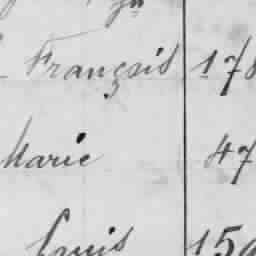 François 178
Marie 47
Louis 159